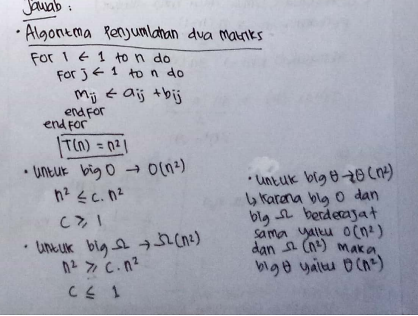 Jawab :
• Algoritma Penjumlahan dua matriks
For i ← 1 to n do
For j ← 1 to n do
mij ← aij + bij
endfor
endfor
T(n) = n²
• Untuk big O → O(n²)
n² ≤ c. n²
c ≥ 1
• Untuk big Ω → Ω(n²)
n² ≥ c. n²
c ≤ 1
• Untuk big θ → θ(n²)
↳ Karena big O dan
big Ω berderajat
sama yaitu O(n²)
dan Ω (n²) maka
big θ yaitu θ(n²)